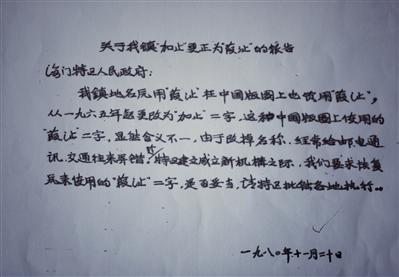 关于我镇"加止"更正为"葭沚"的报告
海门特区人民政府:
我镇地名原用"葭沚"在中国版图上也饮用"葭沚",
从一九六五年起更改为"加止"二字,这种中国版图上使用的
"葭沚"二字,显然含义不一,由于改掉名称,经常给邮电通
讯、交通往来弄错,特区建立成立新机构之际,我们要求恢复
原来使用的"葭沚"二字,是否妥当,请特区批转各地执行。
一九八〇年十一月二十日